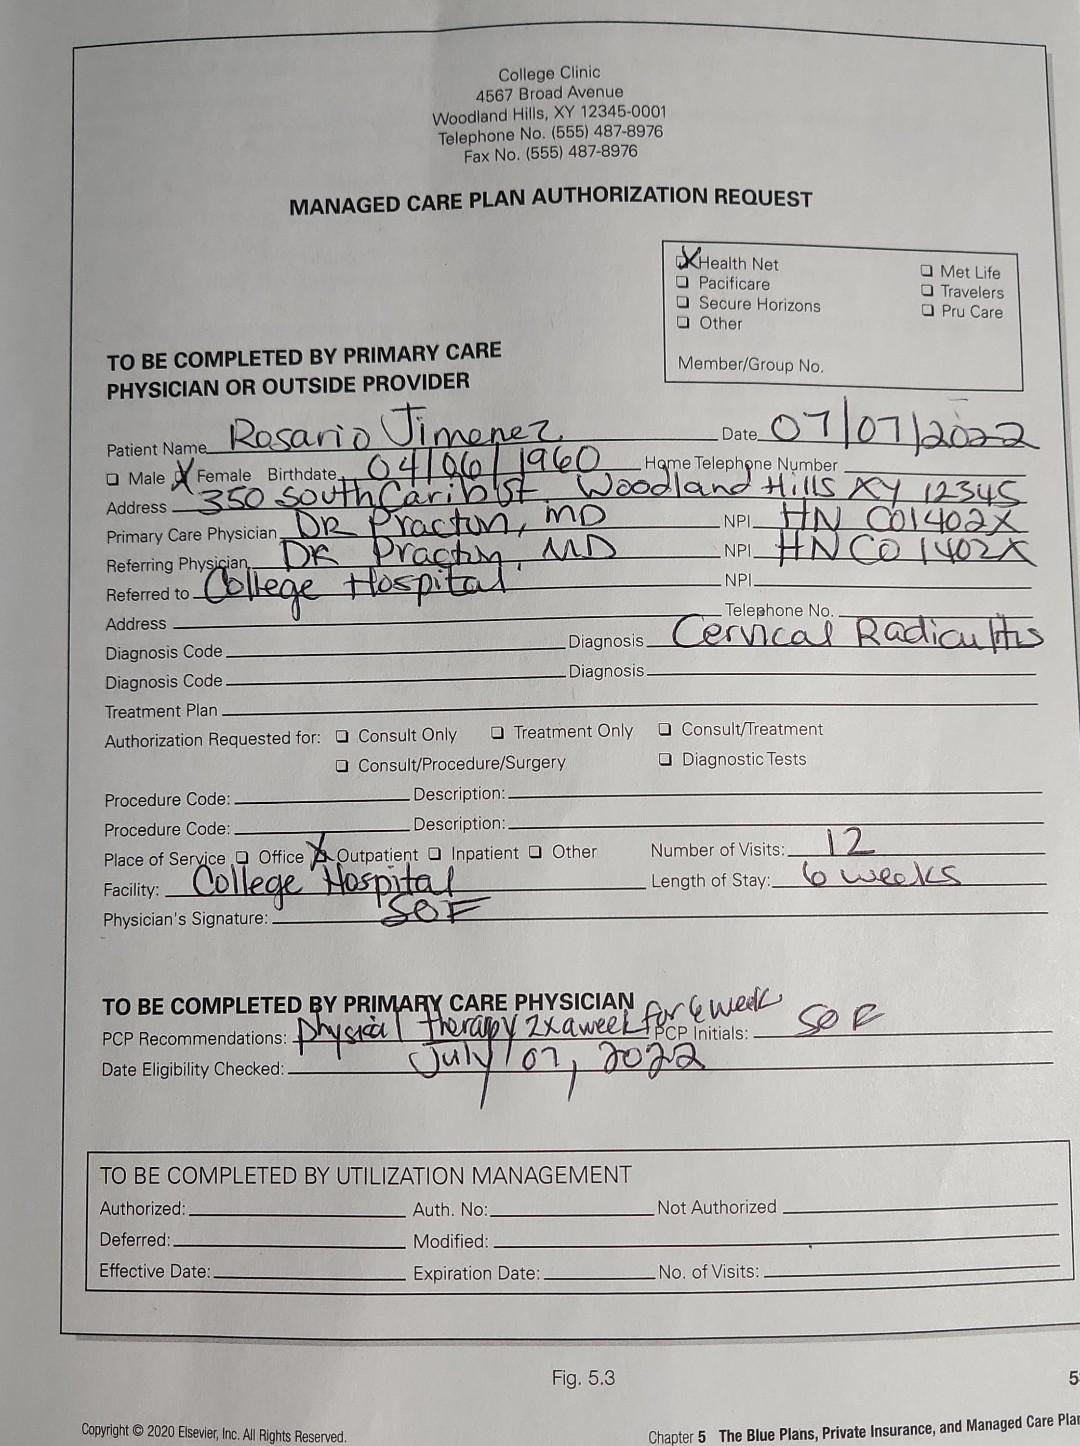 College Clinic
4567 Broad Avenue
Woodland Hills, XY 12345-0001
Telephone No. (555) 487-8976
Fax No. (555) 487-8976
MANAGED CARE PLAN AUTHORIZATION REQUEST
X Health Net ❑ Met Life
❑ Pacificare ❑ Travelers
❑ Secure Horizons ❑ Pru Care
❑ Other
Member/Group No.
TO BE COMPLETED BY PRIMARY CARE
PHYSICIAN OR OUTSIDE PROVIDER
Patient Name Rosario Jimenez Date 07/07/2022
❑ Male X Female Birthdate 04/06/1960 Home Telephone Number
Address 350 South Carib St. Woodland Hills XY 12345
Primary Care Physician DR Practon, MD NPI HN C01402X
Referring Physician DR Practon, MD NPI HN C01402X
Referred to College Hospital NPI
Address Telephone No.
Diagnosis Code Diagnosis Cervical Radiculitis
Diagnosis Code Diagnosis
Treatment Plan
Authorization Requested for: ❑ Consult Only ❑ Treatment Only ❑ Consult/Treatment
❑ Consult/Procedure/Surgery ❑ Diagnostic Tests
Procedure Code: Description:
Procedure Code: Description:
Place of Service ❑ Office X Outpatient ❑ Inpatient ❑ Other Number of Visits: 12
Facility: College Hospital Length of Stay: 6 weeks
Physician's Signature: SOF
TO BE COMPLETED BY PRIMARY CARE PHYSICIAN
PCP Recommendations: physical therapy 2x a week for 6 week PCP Initials: SOF
Date Eligibility Checked: July 07, 2022
TO BE COMPLETED BY UTILIZATION MANAGEMENT
Authorized: Auth. No: Not Authorized
Deferred: Modified:
Effective Date: Expiration Date: No. of Visits:
Fig. 5.3
5
Copyright © 2020 Elsevier, Inc. All Rights Reserved.
Chapter 5 The Blue Plans, Private Insurance, and Managed Care Plan